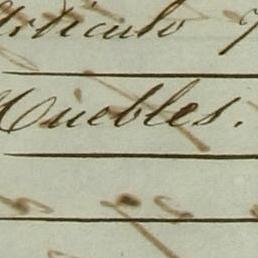 Articulo 7
Muebles.